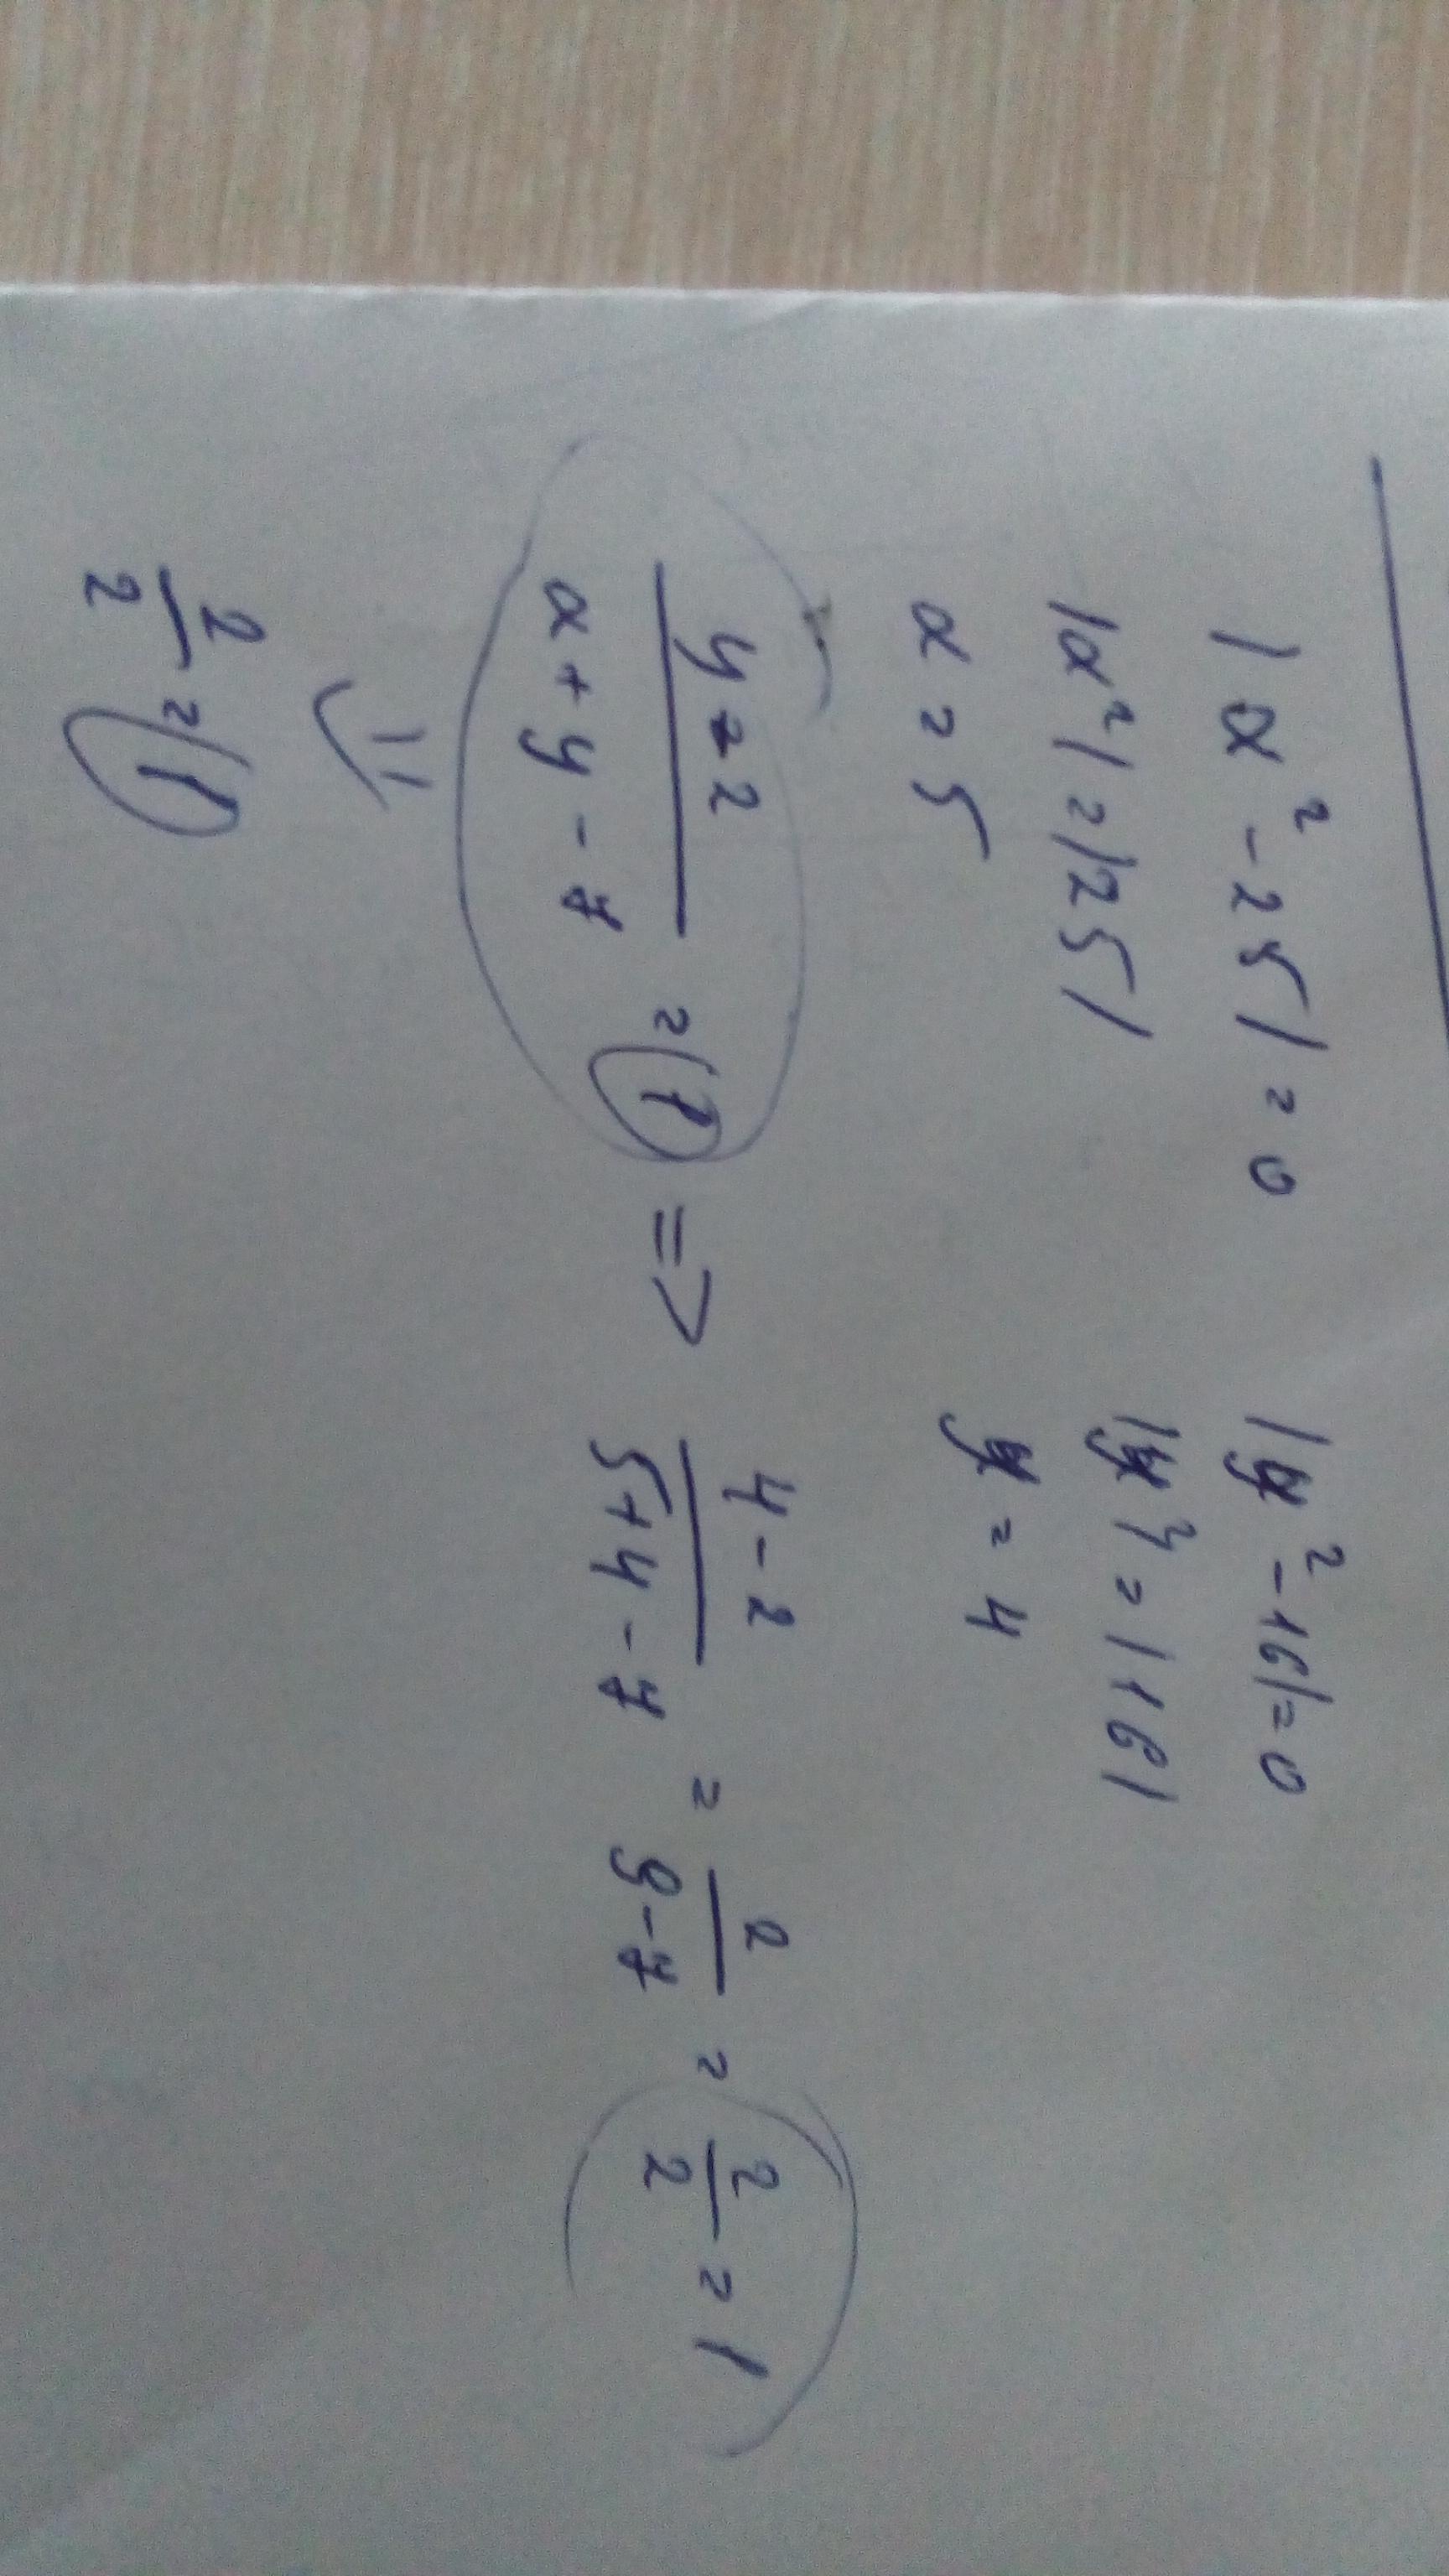 |x² - 25| = 0 |y² - 16| = 0
|x²| = |25| |y²| = |16|
x = 5 y = 4
y - 2 / x + y - 7 = 1 => 4 - 2 / 5 + 4 - 7 = 2 / 9 - 7 = 2 / 2 = 1
2 / 2 = 1